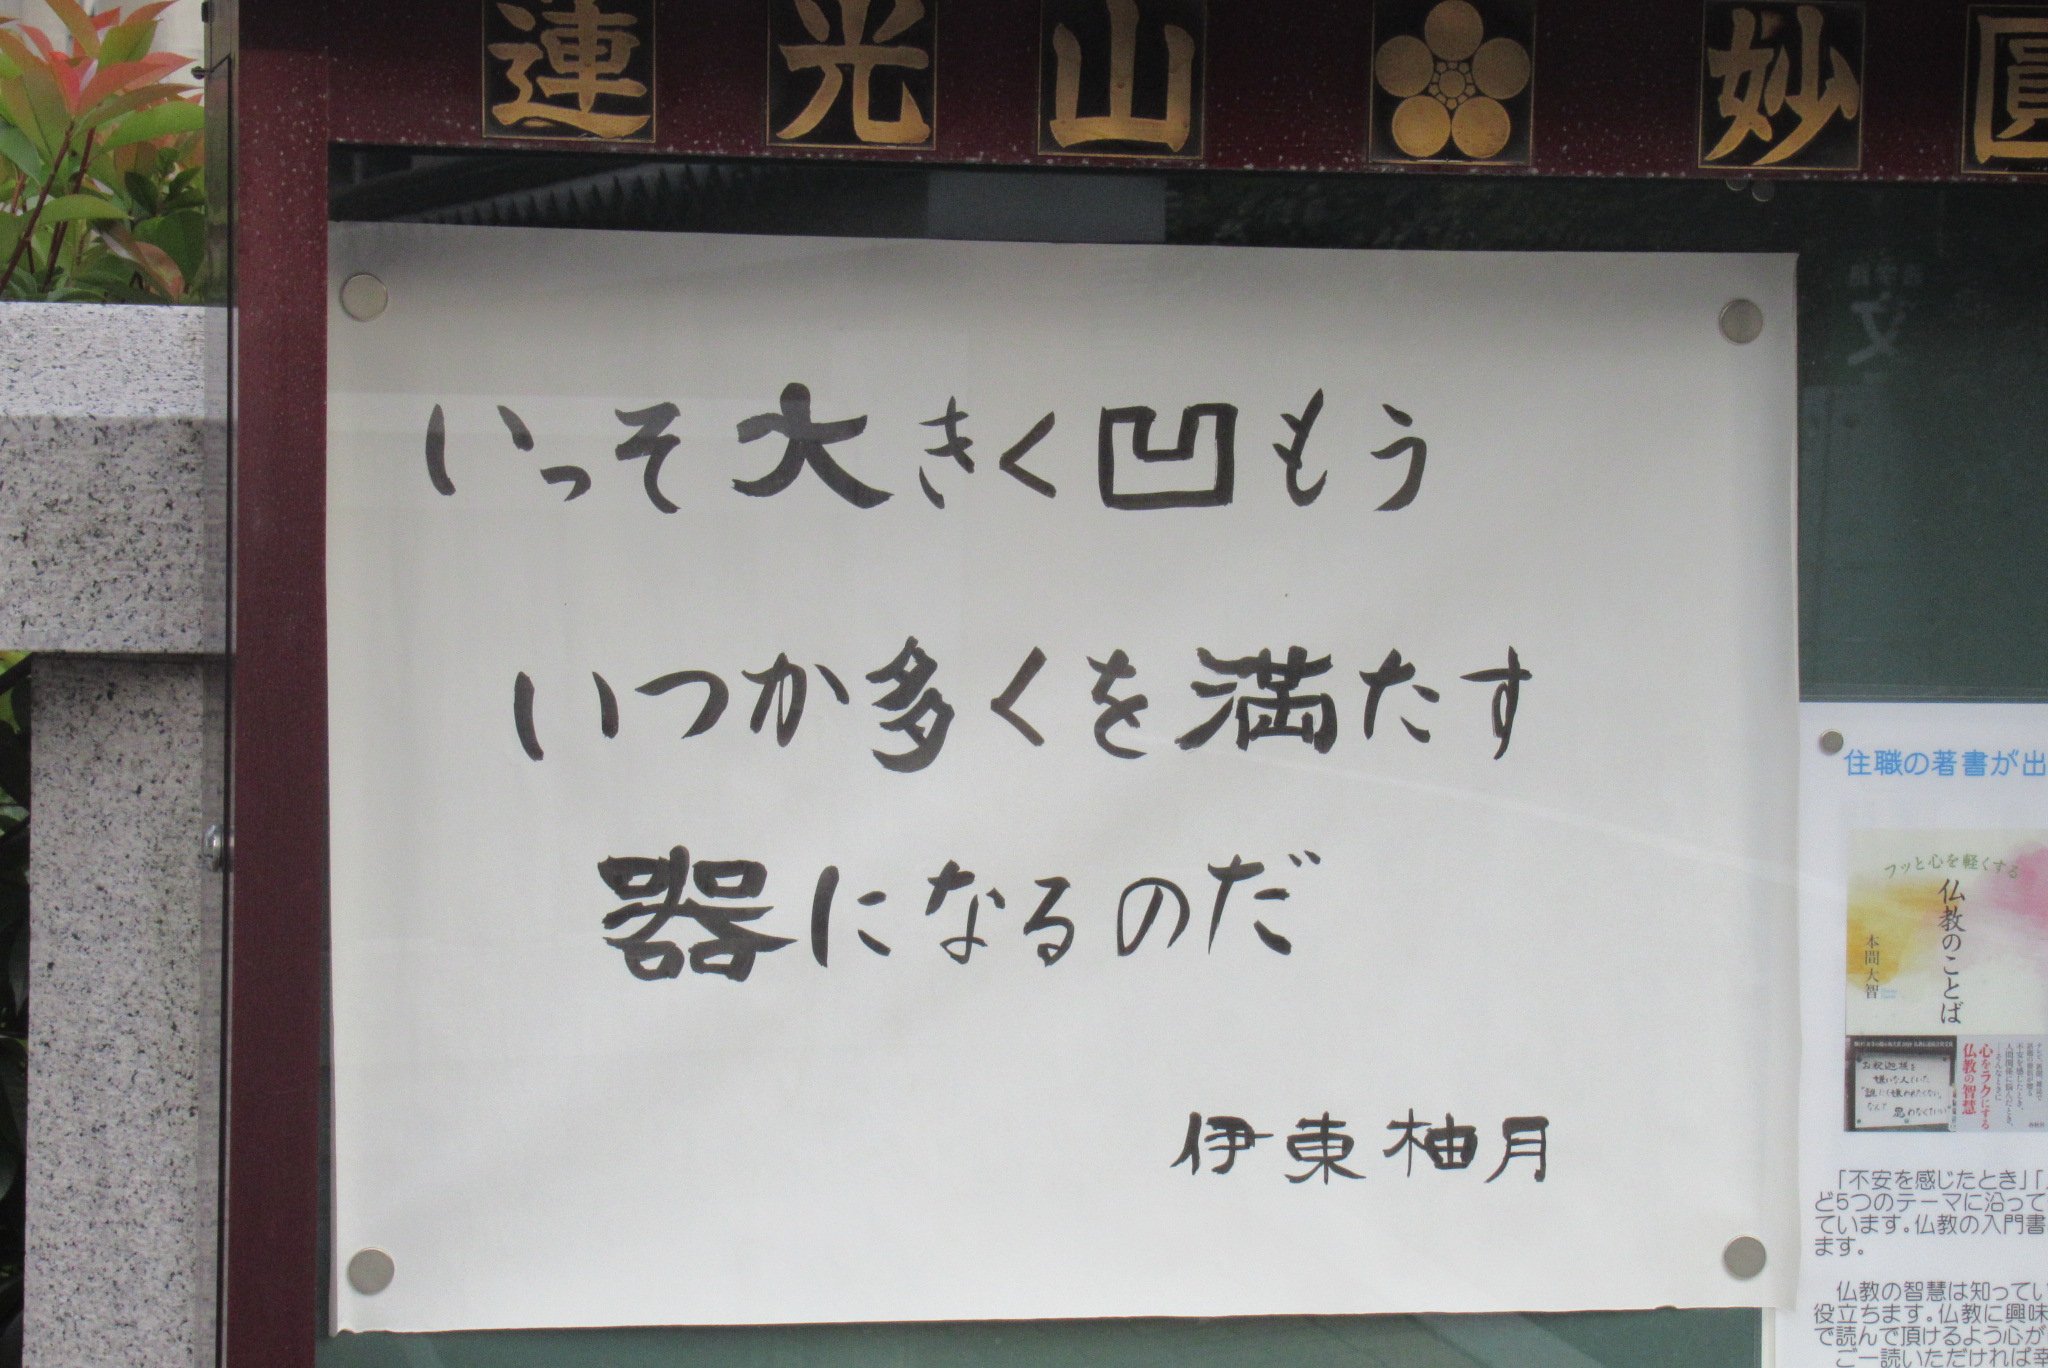 蓮光山 妙圓
いっそ大きく凹もう
いつか多くを満たす
器になるのだ
伊東柚月
住職の著書が出
フッと心を軽くする
仏教のことば
本間大智
心をラクにする
仏教の智慧
お釈迦様を
嫌いな人もいた
「誰にも嫌われたくない」
なんて
思わなくていい
「不安を感じたとき」「
ど5つのテーマに沿って
ています。仏教の入門書
ます。
仏教の智慧は知ってい
役立ちます。仏教に興味
で読んで頂けるよう心が
ご一読いただければ幸